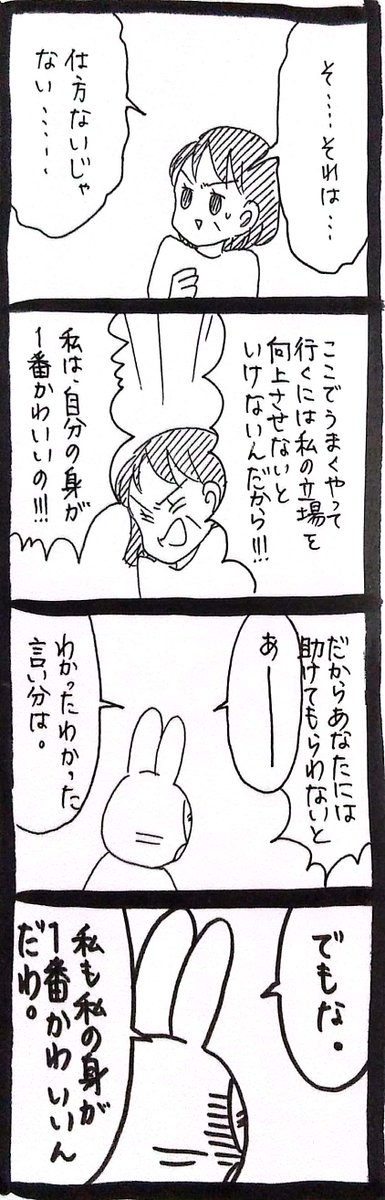 そ……それは…
仕方ないじゃ
ない……
ここでうまくやって
行くには私の立場を
向上させないと
いけないんだから!!!
私は、自分の身が
1番かわいいの!!!
だからあなたには
助けてもらわないと
あーー
わかったわかった
言い分は。
でもな。
私も私の身が
1番かわいいん
だわ。